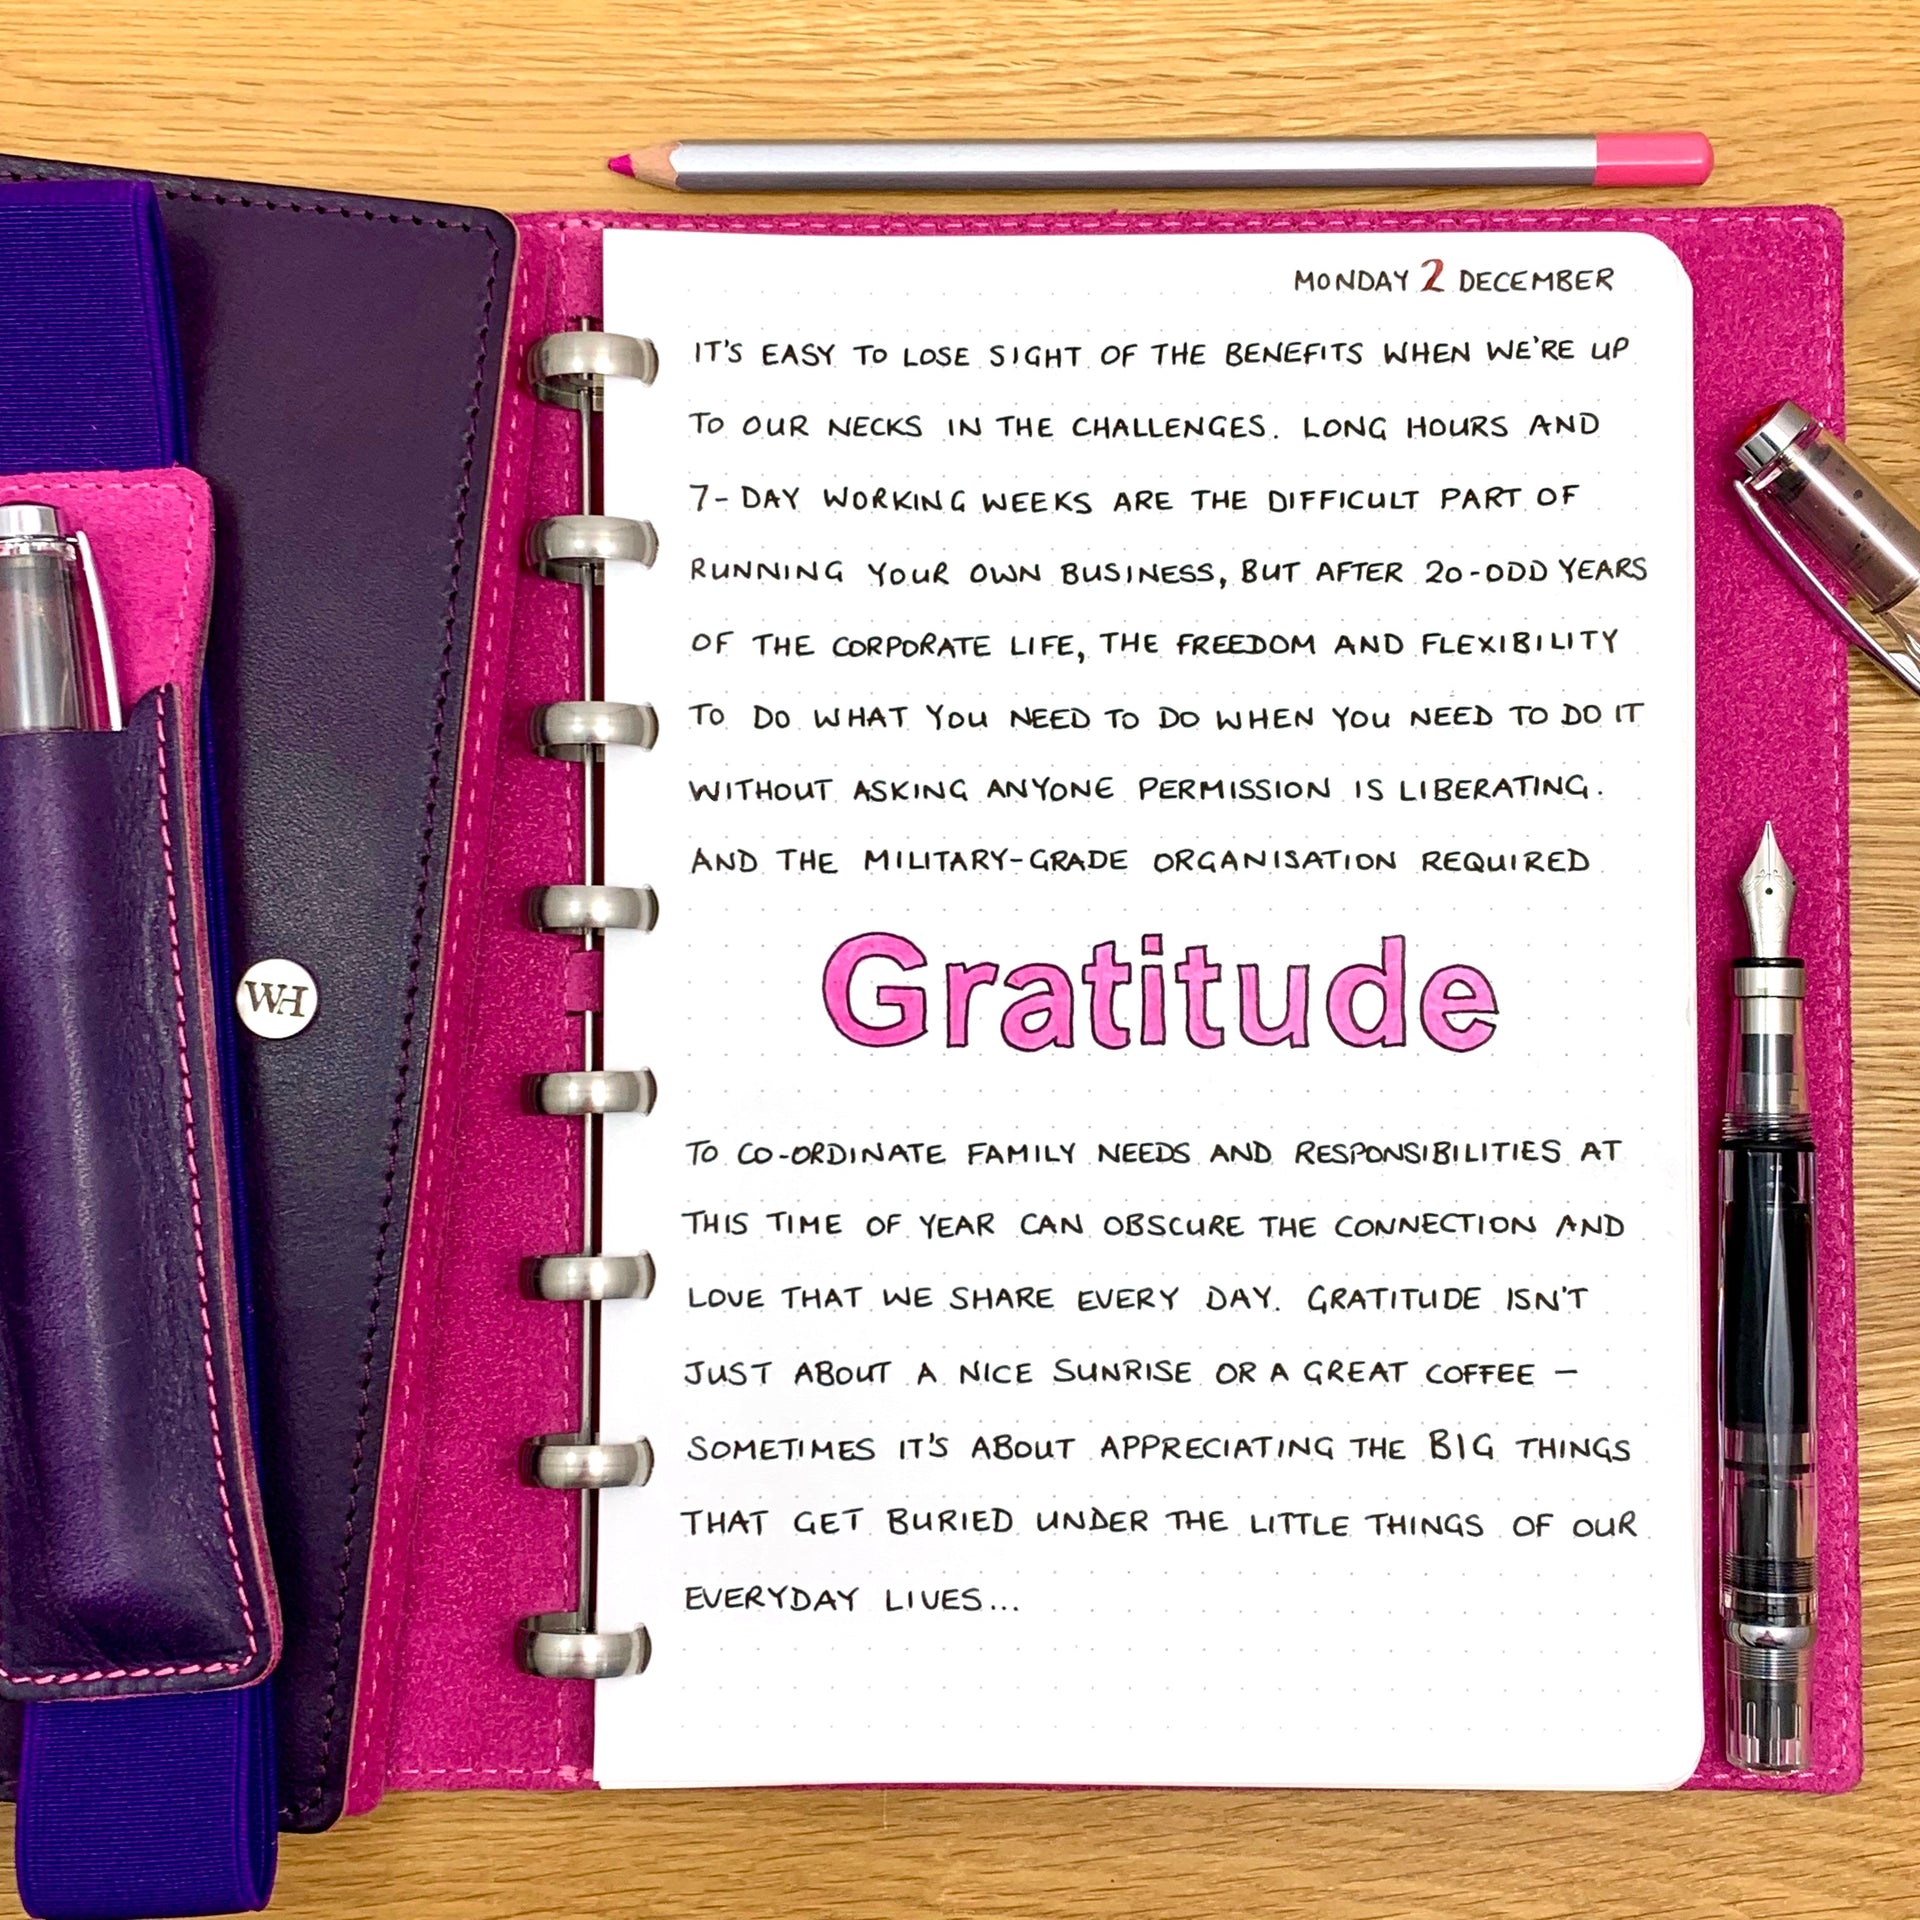 MONDAY 2 DECEMBER
IT'S EASY TO LOSE SIGHT OF THE BENEFITS WHEN WE'RE UP
TO OUR NECKS IN THE CHALLENGES. LONG HOURS AND
7-DAY WORKING WEEKS ARE THE DIFFICULT PART OF
RUNNING YOUR OWN BUSINESS, BUT AFTER 20-ODD YEARS
OF THE CORPORATE LIFE, THE FREEDOM AND FLEXIBILITY
TO DO WHAT YOU NEED TO DO WHEN YOU NEED TO DO IT
WITHOUT ASKING ANYONE PERMISSION IS LIBERATING.
AND THE MILITARY-GRADE ORGANISATION REQUIRED
Gratitude
TO CO-ORDINATE FAMILY NEEDS AND RESPONSIBILITIES AT
THIS TIME OF YEAR CAN OBSCURE THE CONNECTION AND
LOVE THAT WE SHARE EVERY DAY. GRATITUDE ISN'T
JUST ABOUT A NICE SUNRISE OR A GREAT COFFEE –
SOMETIMES IT'S ABOUT APPRECIATING THE BIG THINGS
THAT GET BURIED UNDER THE LITTLE THINGS OF OUR
EVERYDAY LIVES...
WH